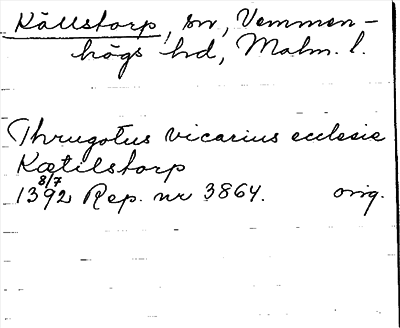 Källstorp, sn, Vemmen-
högs hd, Malm. l.
Thrugotus vicarius ecclesie
Kætilstorp
1392 8/7 Rep. nr 3864. orig.